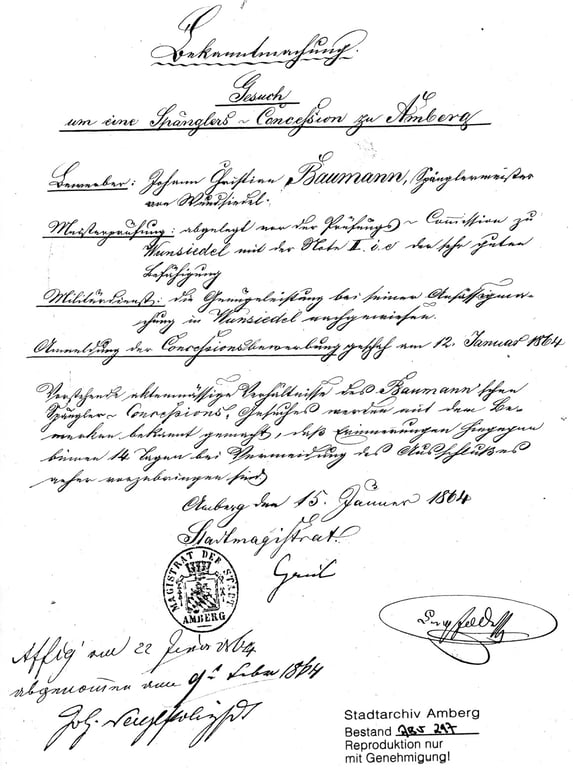 Bekanntmachung.
Gesuch
um eine Spänglers-Concession zu Amberg
Bewerber: Johann Christian Baumann, Spänglermeister
von Wunsiedel.
Meisterprüfung: abgelegt vor der Prüfungs-Commission zu
Wunsiedel mit der Note II. i.e. der sehr guten
Befähigung
Militärdienst: die Genügeleistung bei seiner Ansässigma-
chung in Wunsiedel nachgewiesen.
Anmeldung der Concessionsbewerbung geschah am 12. Januar 1864
Vorstehende aktenmässige Verhältnisse des Baumann'schen
Spängler-Concessions Gesuches werden mit dem Be-
merken bekannt gemacht, daß Erinnerungen hiegegen
binnen 14 Tagen bei Vermeidung des Ausschlußes
anher vorzubringen sind
Amberg den 15. Jänner 1864
Stadtmagistrat.
MAGISTRAT DER STADT
AMBERG
Affig. am 22 1864
abgenommen am 9t Febr 1864
Joh.
Stadtarchiv Amberg
Bestand 297
Reproduktion nur
mit Genehmigung!